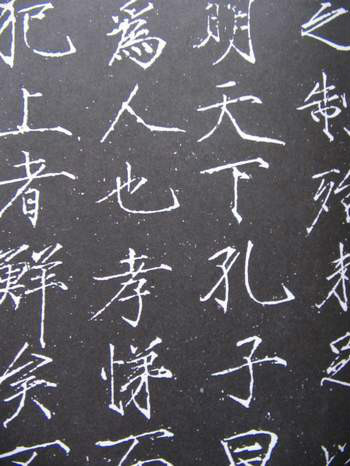 之制殆
明天下孔子曰
爲人也孝悌而
犯上者鮮矣不